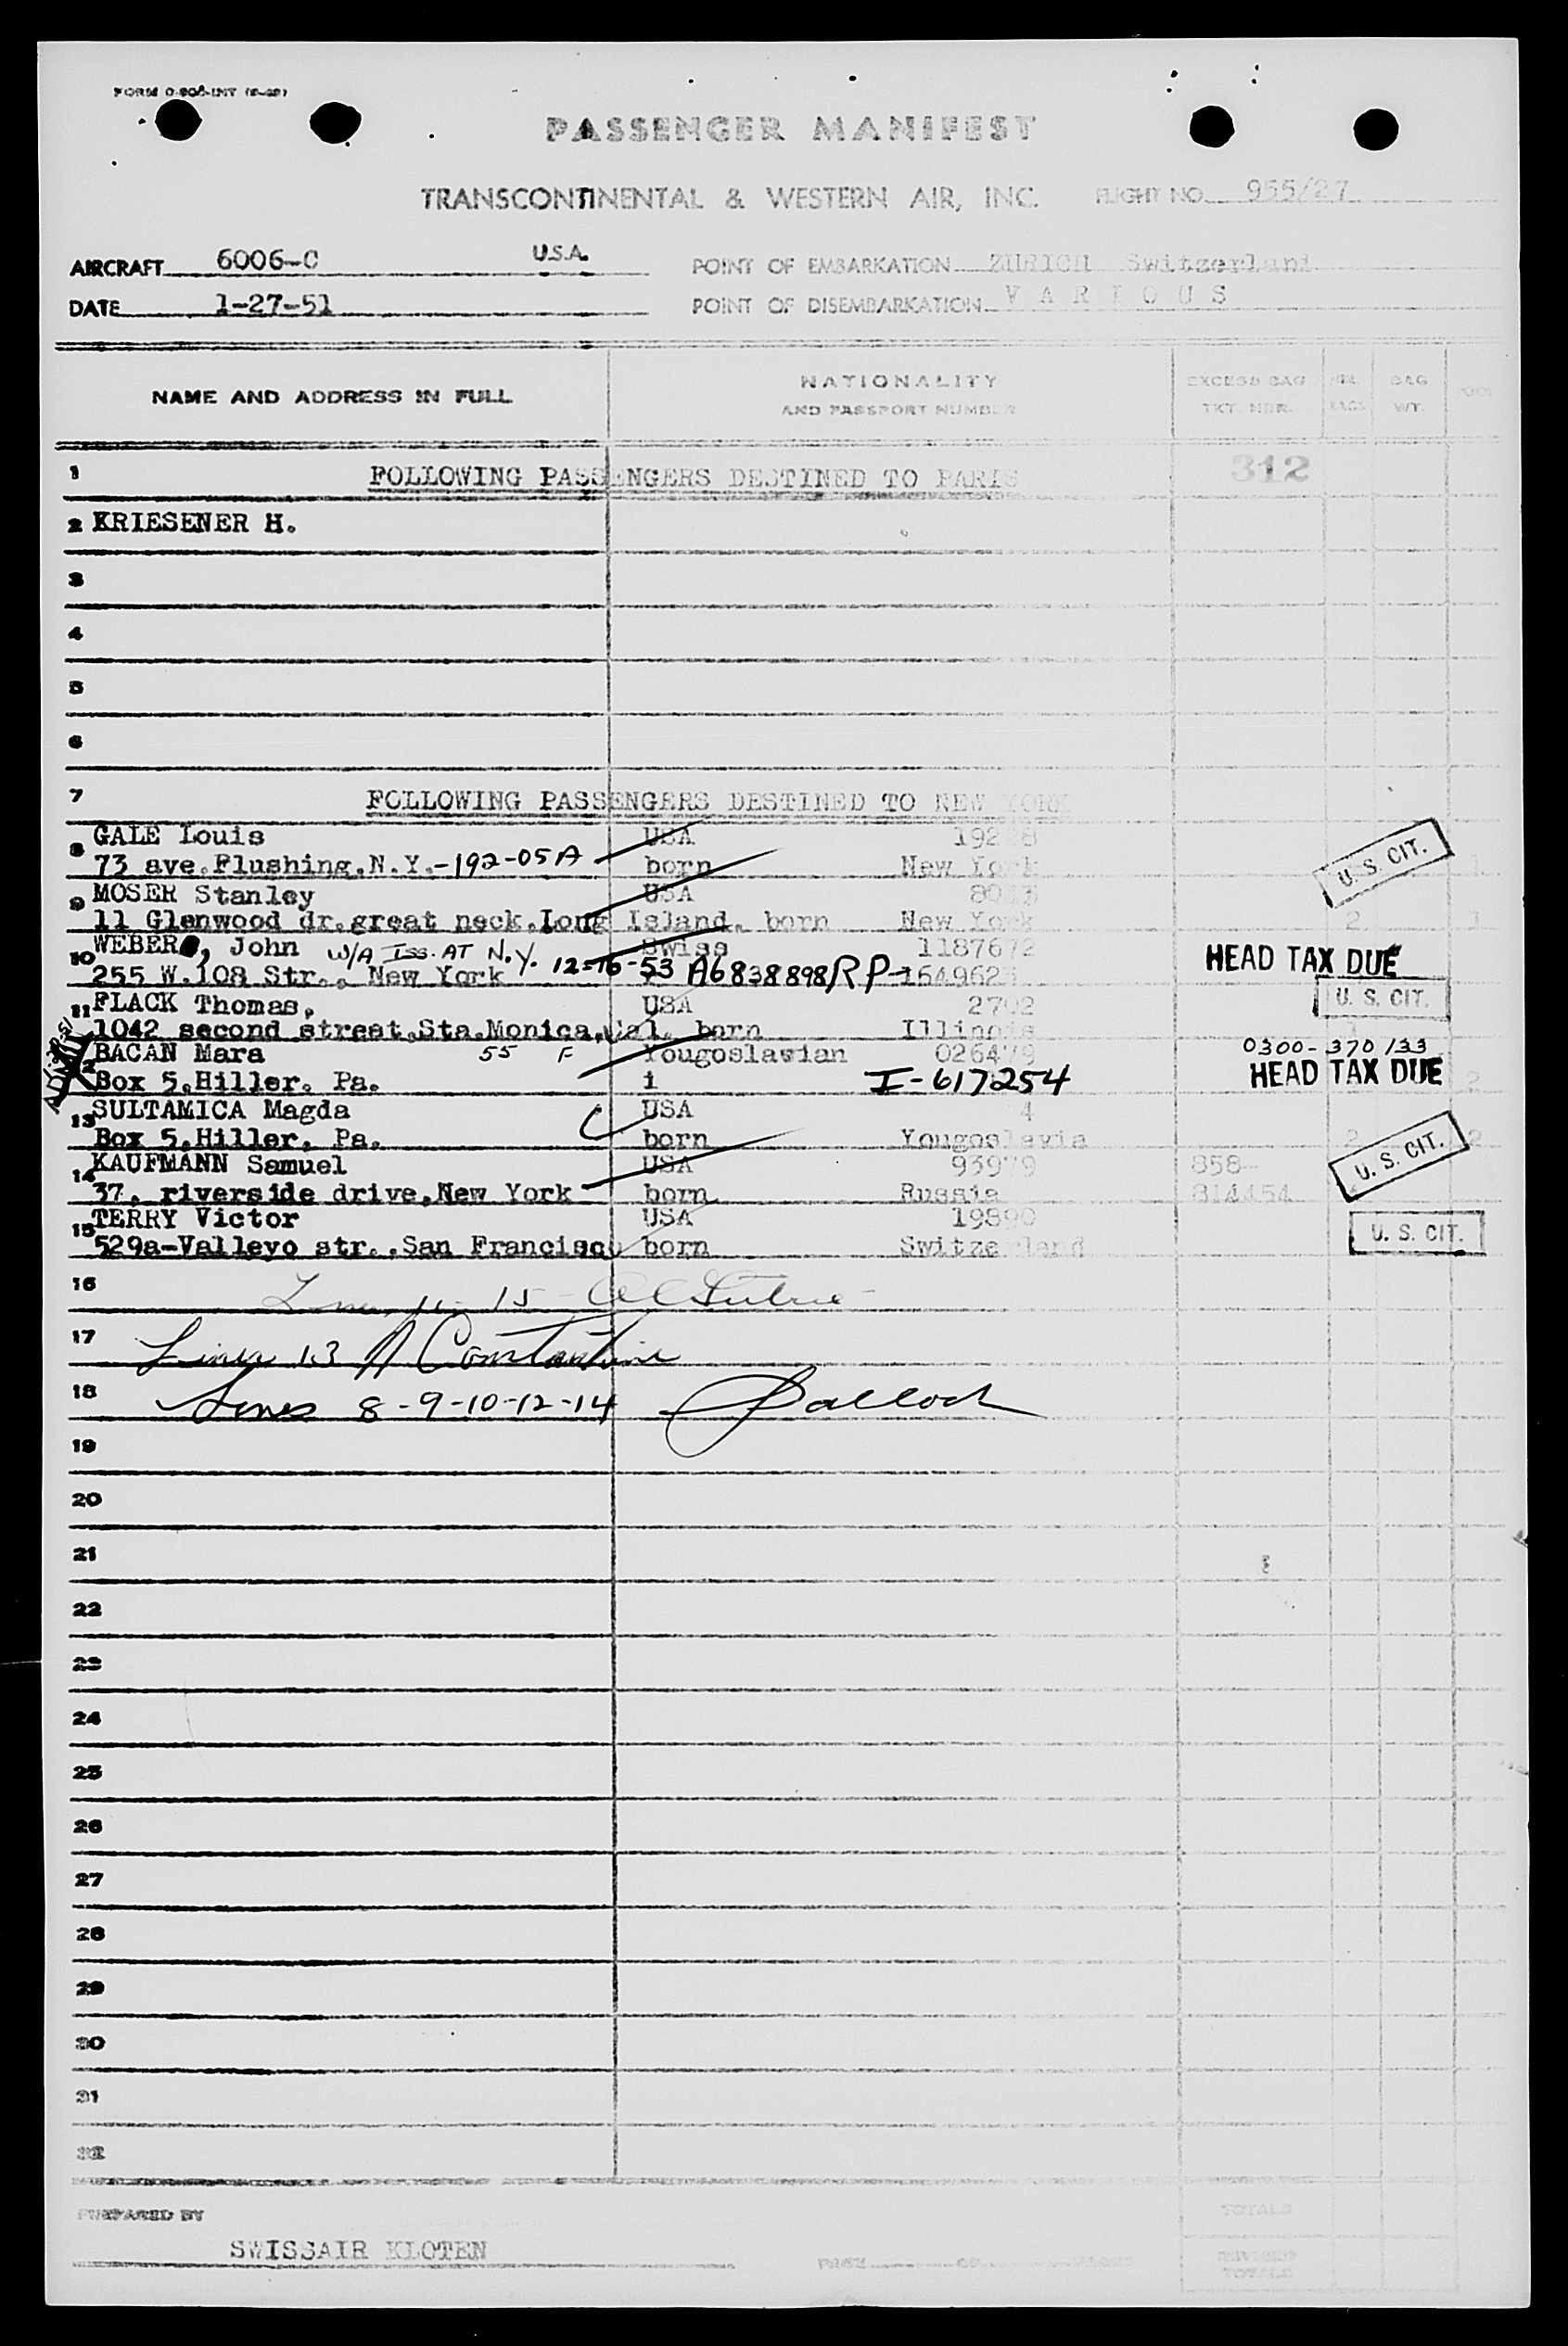 PASSENGER MANIFEST
TRANSCONTINENTAL & WESTERN AIR, INC. FLIGHT NO. 955/27
AIRCRAFT 6006-C U.S.A. POINT OF EMBARKATION ZURICH Switzerland
DATE 1-27-51 POINT OF DISEMBARKATION V A R I O U S
NAME AND ADDRESS IN FULL NATIONALITY EXCESS BAG BAG
AND PASSPORT NUMBER TKT. NBR. BAGS WT.
1 FOLLOWING PASSENGERS DESTINED TO PARIS 312
2 KRIESENER H.
3
4
5
6
7 FOLLOWING PASSENGERS DESTINED TO NEW YORK
8 GALE Louis USA U. S. CIT.
73 ave.Flushing.N.Y.-192-05A born New York 1
9 MOSER Stanley USA
11 Glenwood dr.great neck.Long Island. born New York 2 1
10 WEBER, John W/A Iss. AT N.Y. 12-16-53 Swiss A6838898 RP- 1187672 HEAD TAX DUE
255 W.108 Str., New York
11 FLACK Thomas, USA 2702 U. S. CIT.
1042 second street.Sta.Monica.Cal. born Illinois
12 BACAN Mara 55 F Yougoslavian 026479 0300-370/33
Box 5.Hiller. Pa. i I-617254 HEAD TAX DUE 2
13 SULTAMICA Magda USA 4
Box 5.Hiller. Pa. born Yougoslavia 2 U. S. CIT. 2
14 KAUFMANN Samuel USA 93979 858-
37. riverside drive.New York born Russia 814454
15 TERRY Victor USA 19890 U. S. CIT.
529a-Valleyo str..San Francisco born Switzerland
16 15
17 Lines 13 A Constantine
18 Lines 8-9-10-12-14
19
20
21
22
23
24
25
26
27
28
29
30
31
32
PREPARED BY TOTALS
SWISSAIR KLOTEN PAGE OF
TOTALS